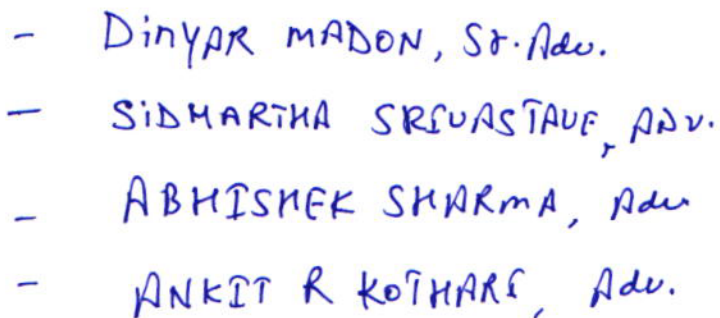 - DinyAR MADON, Sr. Adv.
- SiDHARTHA SRIVASTAVE, ADV.
- ABHISHEK SHARMA, Adv
- ANKIT R KOTHARI, Adv.